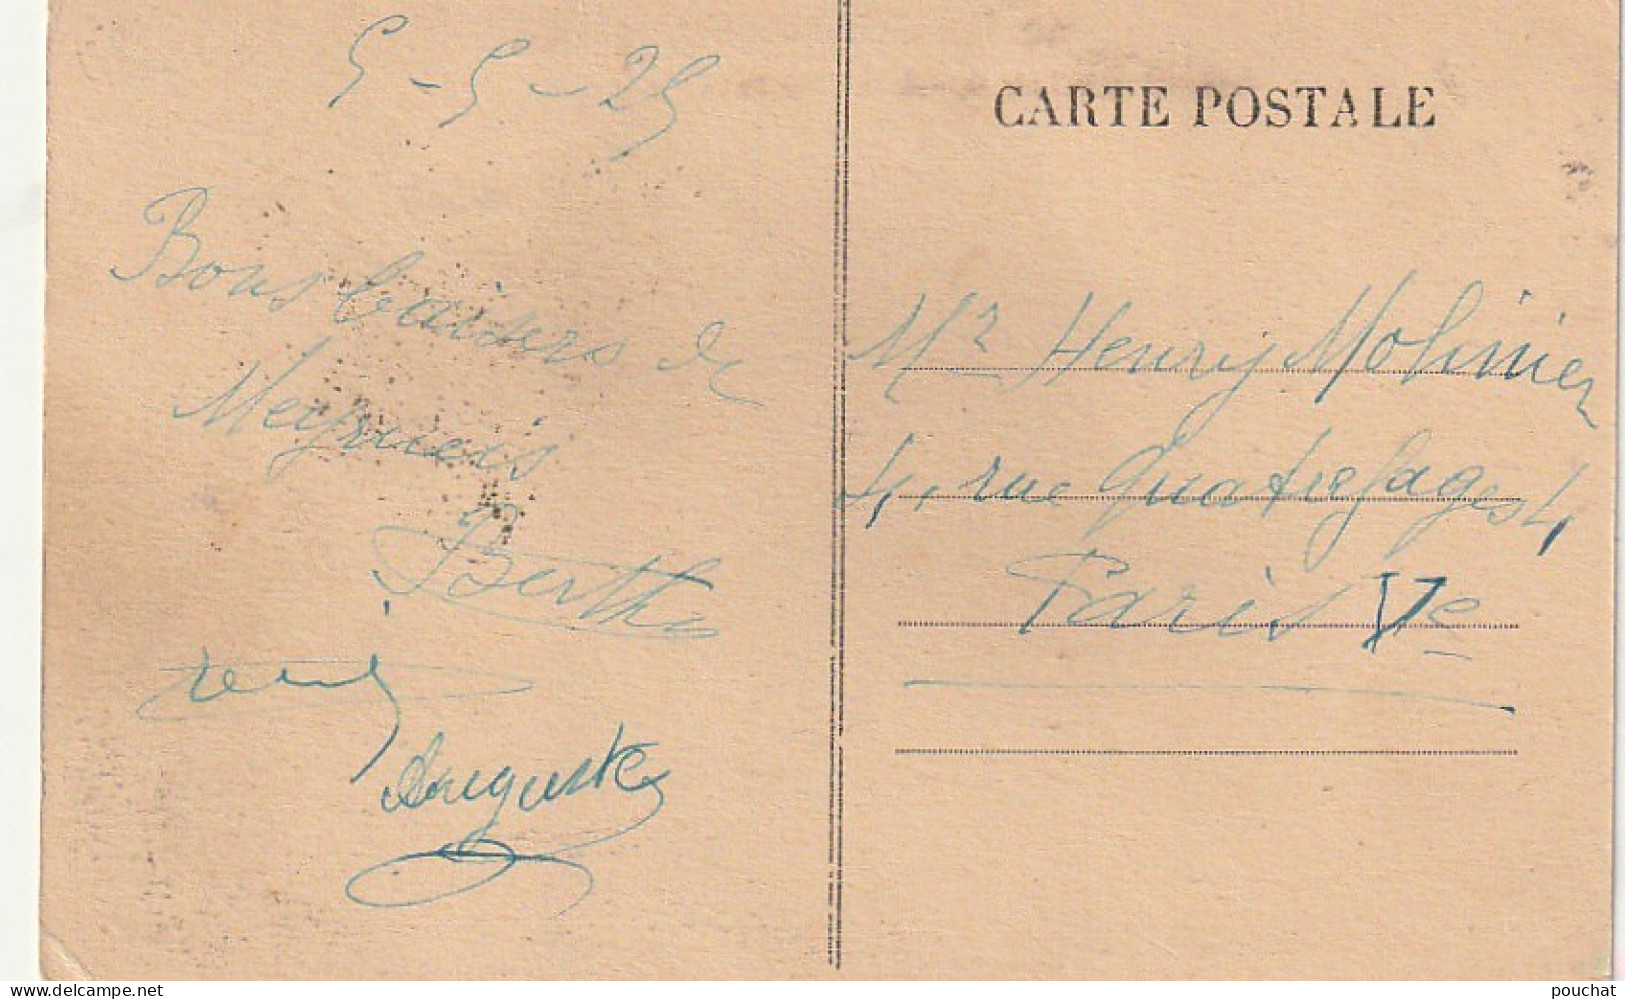 5-5-25
Bons baisers de
Meyrueis
Berthe
Auguste
CARTE POSTALE
Mr Henry Molinier
4, rue Quatrefages 4,
Paris Ve
delcampe.net
pouchat